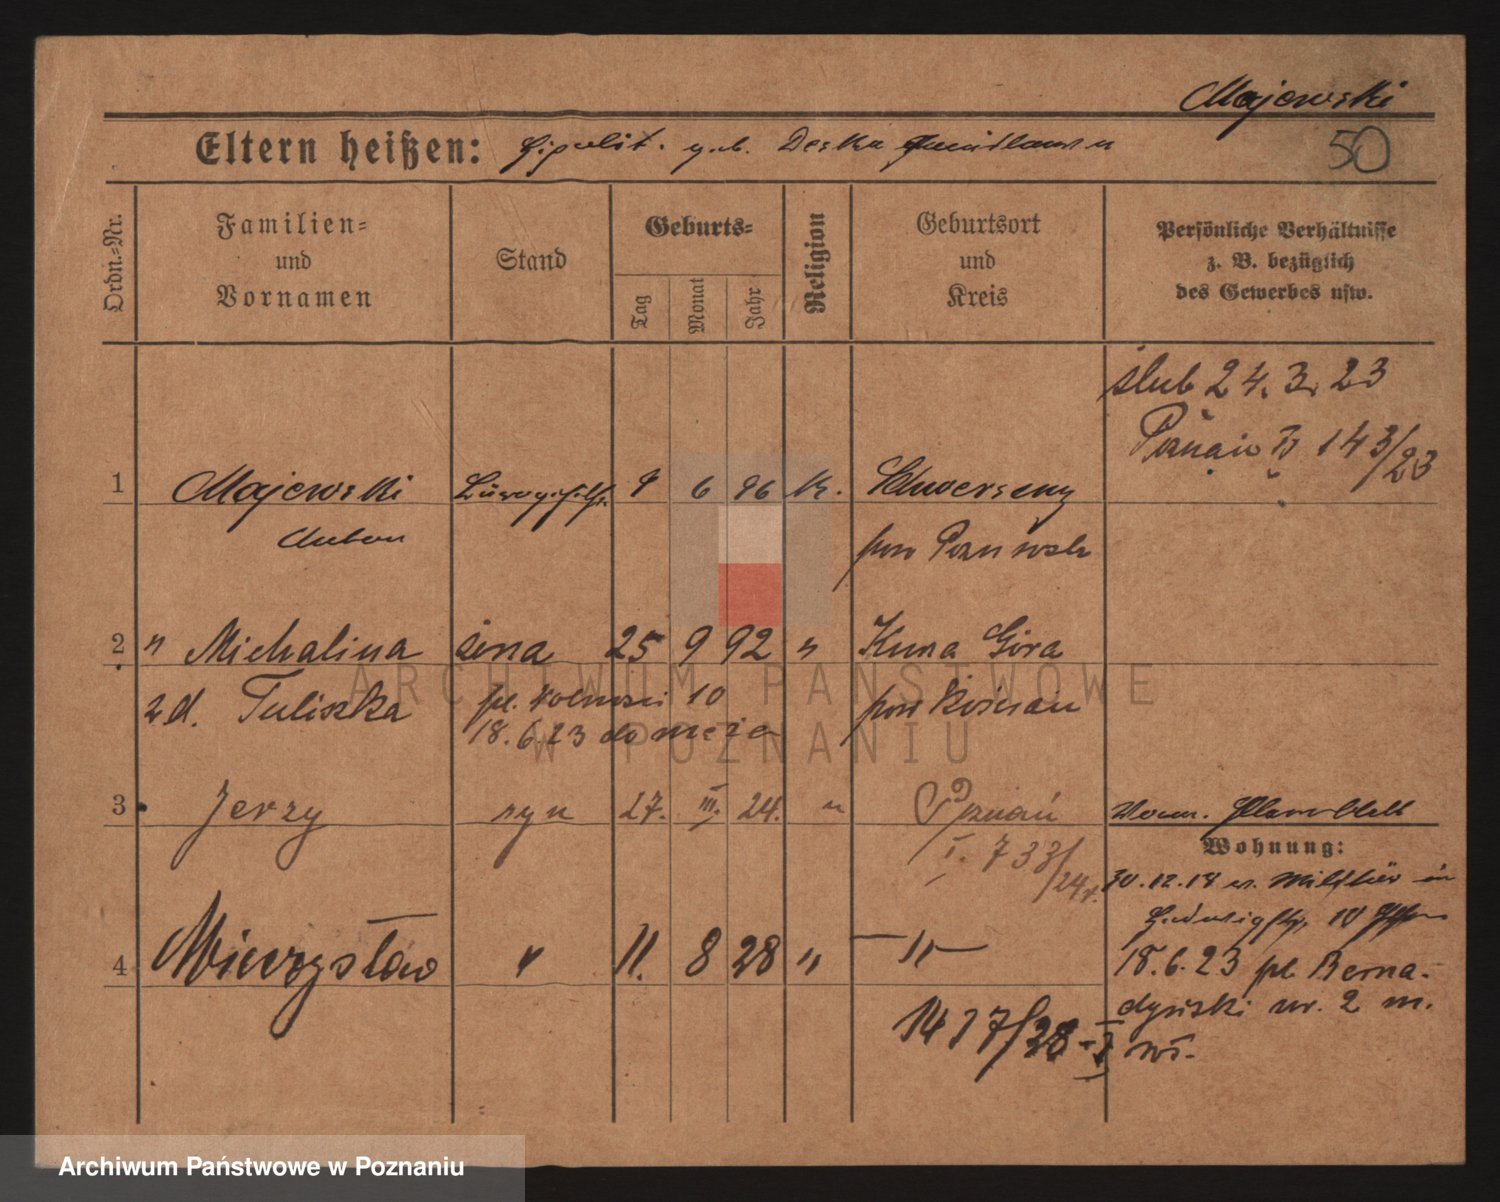 Majewski
50
Eltern heißen: Hipolit. geb. Deska
Ordn.-Nr.
Familien-
und
Vornamen
Stand
Geburts-
Tag
Monat
Jahr
Religion
Geburtsort
und
Kreis
Persönliche Verhältnisse
z. B. bezüglich
des Gewerbes usw.
ślub 24. 3. 23
Poznań 143/23
1 Majewski 6 96 k. Schwersenz
Anton
pow
2 " Michalina żona 25 9 92 " Góra
z d. Tuliszka pl. Wolności 10 pow Kościan
18.6.23 do męża
3 Jerzy syn 27. III. 24. " Poznań
I. 733/24r.
Wohnung:
30.12.18 Militär in
18.6.23 pl. Berna-
4 Mieczysław " 11. 8 28 " —"—
dyński nr. 2 m.
1417/28-I
ARCHIWUM PAŃSTWOWE
W POZNANIU
Archiwum Państwowe w Poznaniu